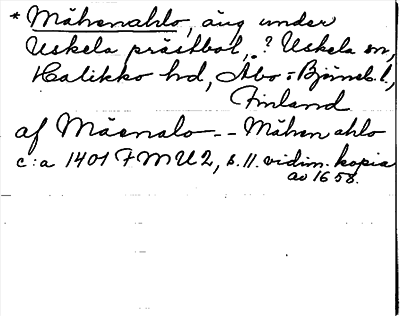 * Mähenahlo, äng under
Uskela prästbol, ? Uskela sn,
Halikko hd, Åbo-Björneb. l.,
Finland
af Mäenalo -- Mähen ahlo
c:a 1401 FMU 2, s. 11. vidim. kopia
av 1658.